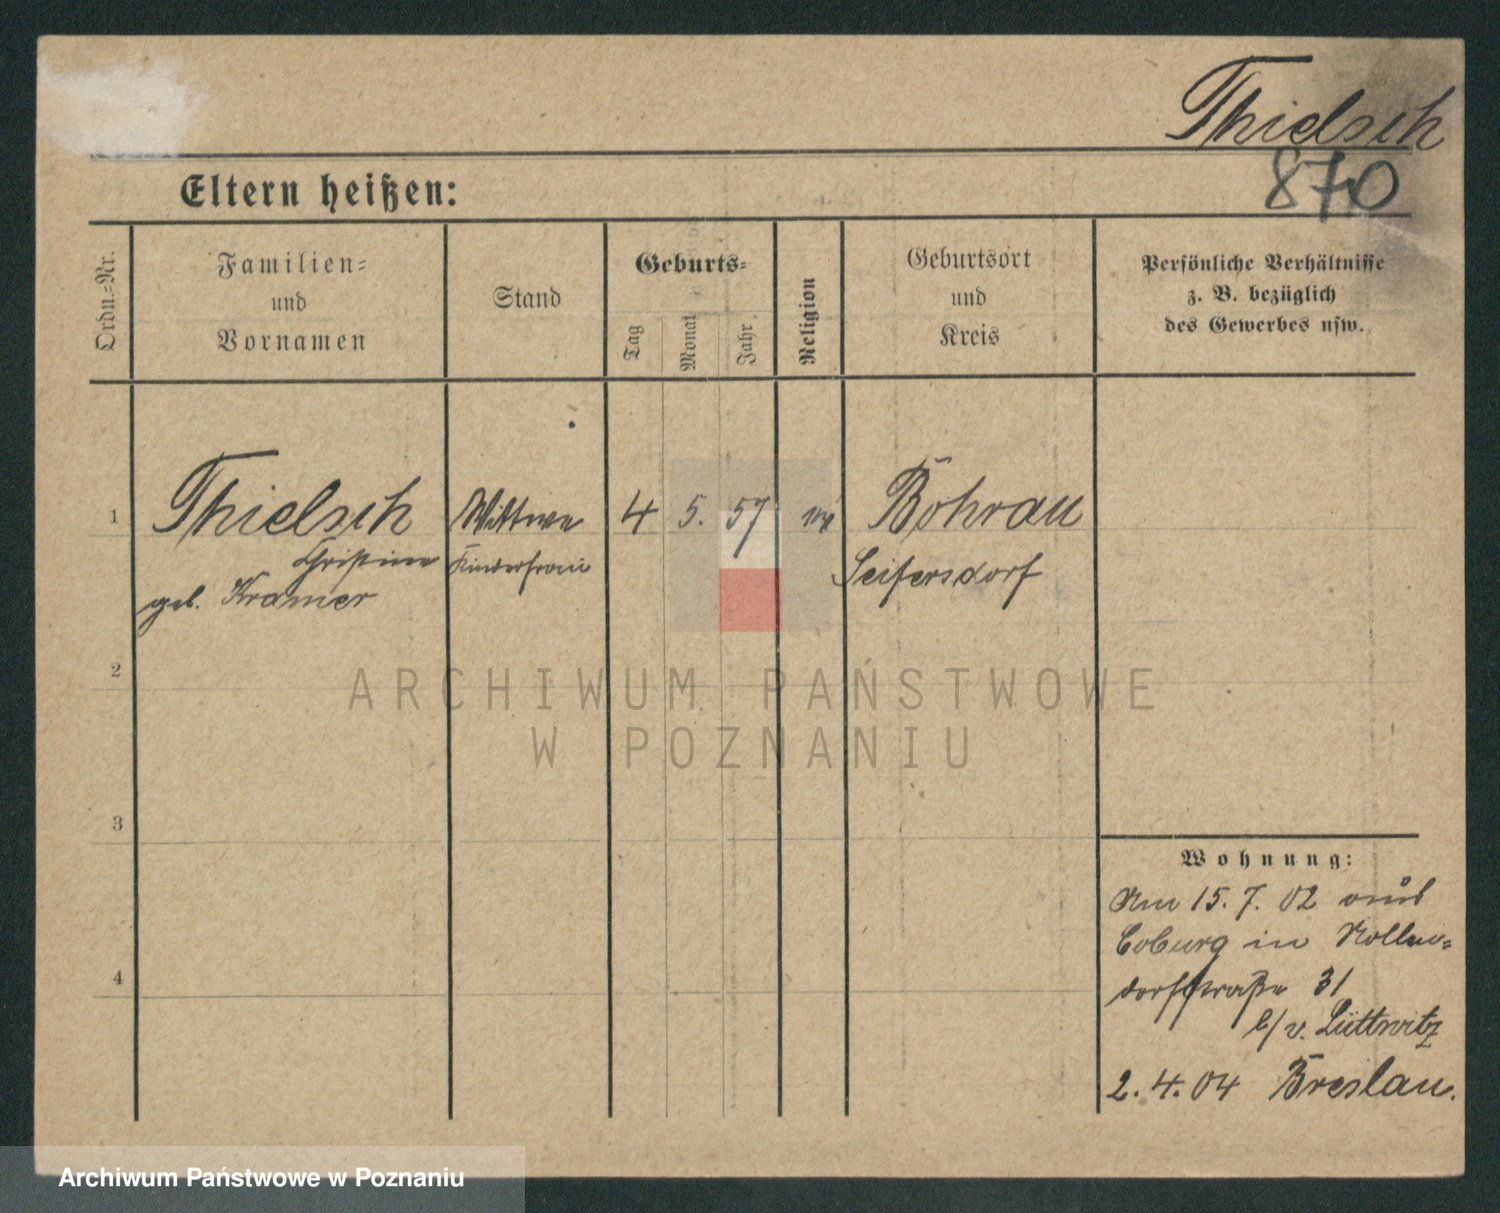 Thielsch
870
Eltern heißen:
Ordn.-Nr.
Familien-
und
Vornamen
Stand
Geburts-
Tag
Monat
Jahr
Religion
Geburtsort
und
Kreis
Persönliche Verhältnisse
z. B. bezüglich
des Gewerbes usw.
1
Thielsch
Christine
geb. Kramer
Wittwe
Kinderfrau
4
5.
57
Bohrau
Seifersdorf
2
3
4
Wohnung:
Am 15. 7. 02 aus
Coburg in Nollen-
dorfstraße 31
b/v. Lüttwitz
2. 4. 04 Breslau.
ARCHIWUM PAŃSTWOWE
W POZNANIU
Archiwum Państwowe w Poznaniu